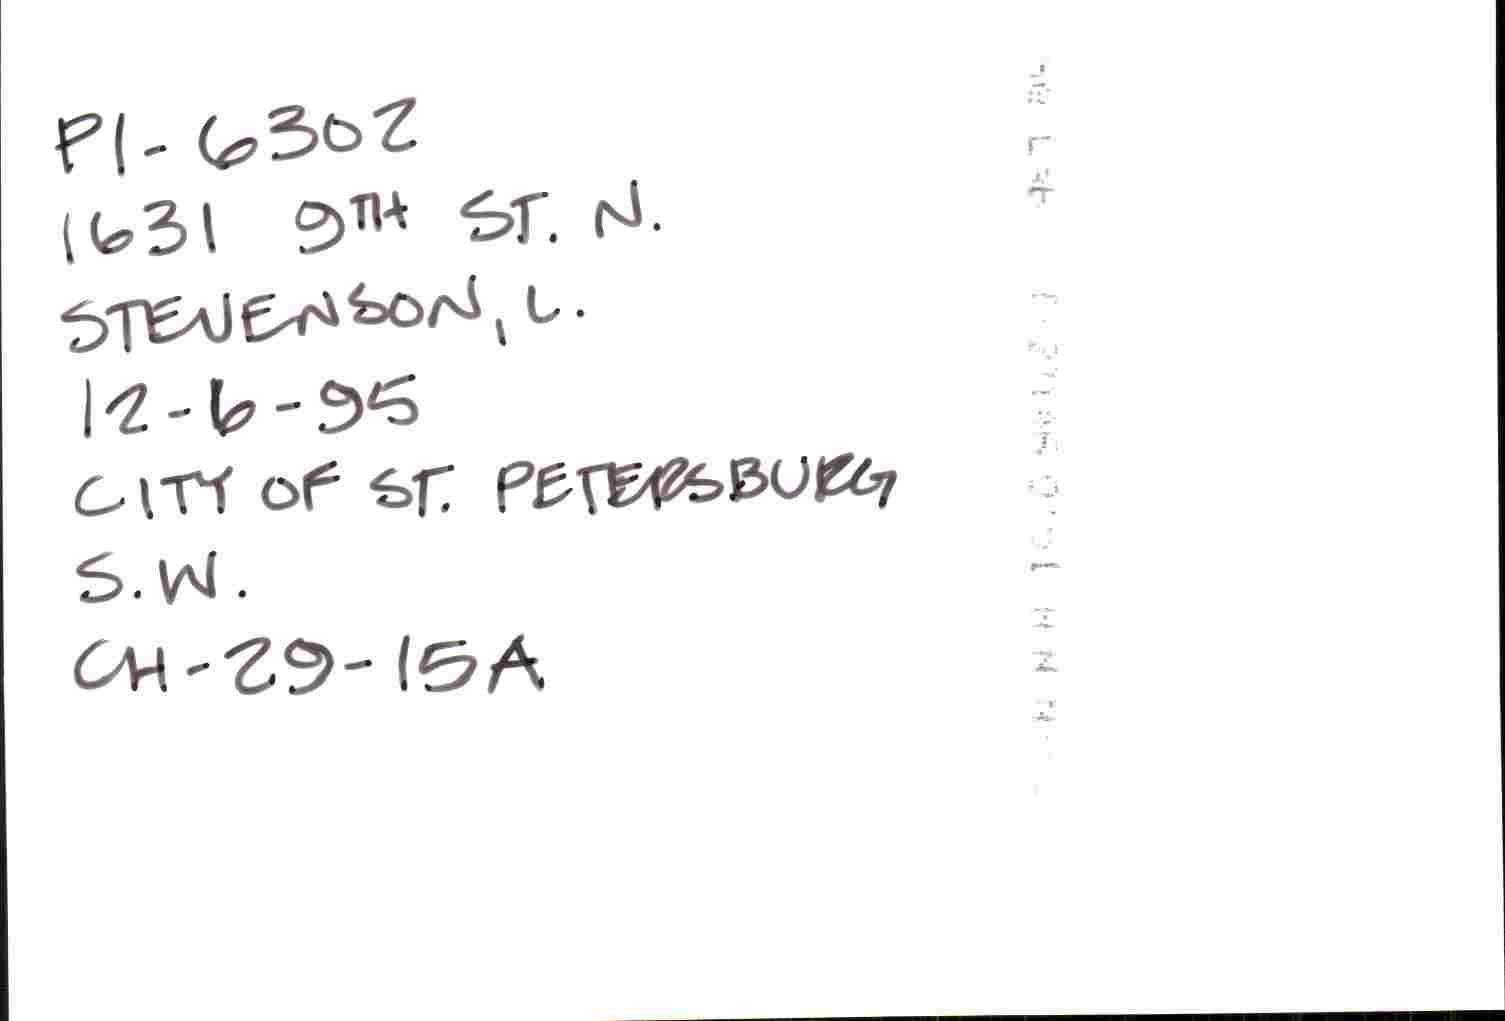 PI-6302
1631 9TH ST. N.
STEVENSON, L.
12-6-95
CITY OF ST. PETERSBURG
S.W.
CH-29-15A